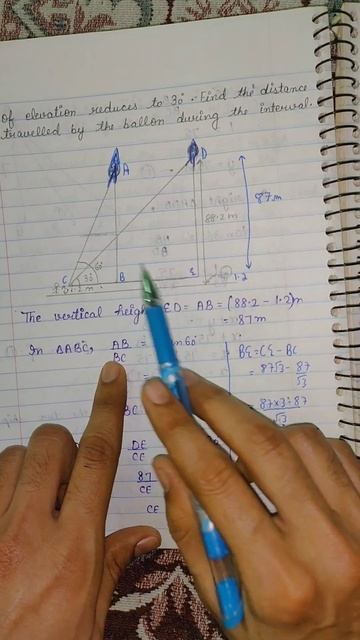 of elevation reduces to 30°. Find the distance
travelled by the ballon during the interval.
A
D
88.2 m
87m
60°
30°
C
B
E
1.2
The vertical height ED = AB = (88.2 - 1.2)m
= 87m
In ΔABC, AB/BC = 60°
BE = CE - BC
= 87√3 - 87/√3
= 87×3-87/√3
BC
DE/CE
87/CE
CE